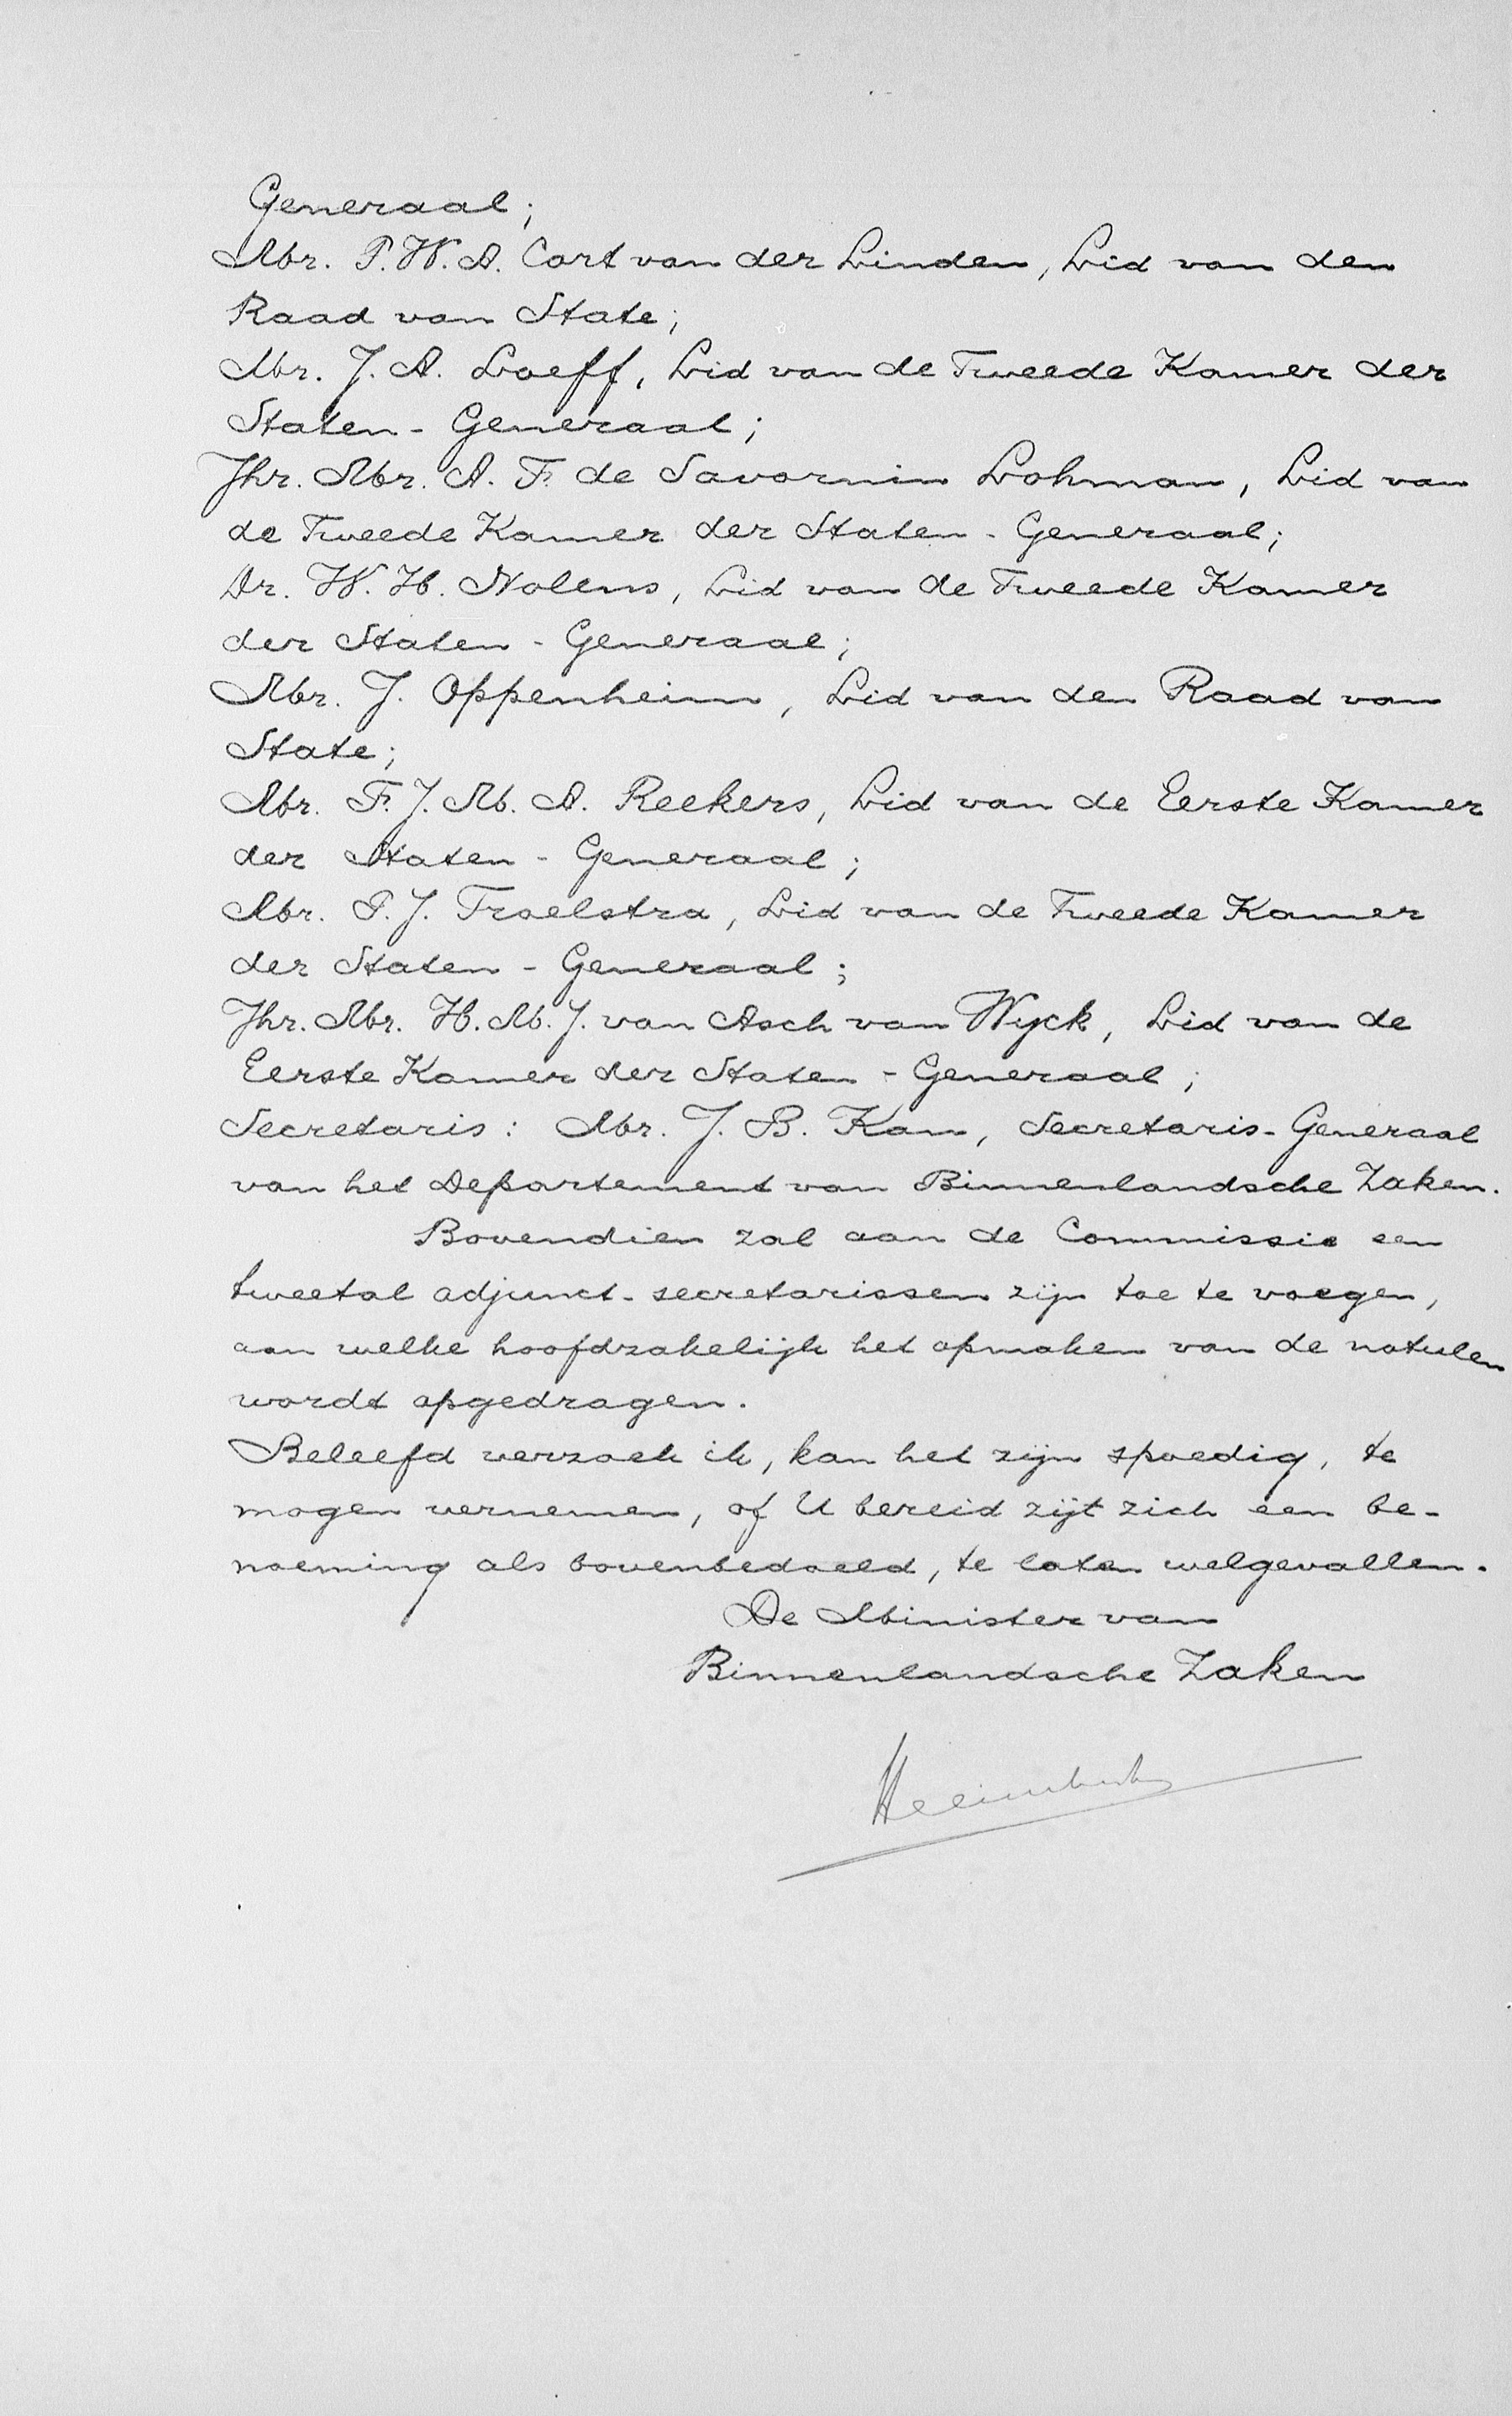 Generaal;
Mr. P. W. A. Cort van der Linden, Lid van den
Raad van State;
Mr. J. A. Loeff, Lid van de Tweede Kamer der
Staten - Generaal;
Jhr. Mr. A. F. de Savornin Lohman, Lid van
de Tweede Kamer der Staten - Generaal;
Dr. W. H. Nolens, Lid van de Tweede Kamer
der Staten - Generaal;
Mr. J. Oppenheim, Lid van den Raad van
State;
Mr. F. J. M. A. Reekers, Lid van de Eerste Kamer
der Staten - Generaal;
Mr. P. J. Troelstra, Lid van de Tweede Kamer
der Staten - Generaal;
Jhr. Mr. H. M. J. van Asch van Wyck, Lid van de
Eerste Kamer der Staten - Generaal;
Secretaris: Mr. J. B. Kan, Secretaris-Generaal
van het Departement van Binnenlandsche Zaken.
Bovendien zal aan de Commissie een
tweetal adjunct-secretarissen zijn toe te voegen,
aan welke hoofdzakelijk het opmaken van de notulen
wordt opgedragen.
Beleefd verzoek ik, kan het zijn spoedig, te
mogen vernemen, of U bereid zijt zich een be-
noeming als bovenbedoeld, te laten welgevallen.
De Minister van
Binnenlandsche Zaken
Heemskerk